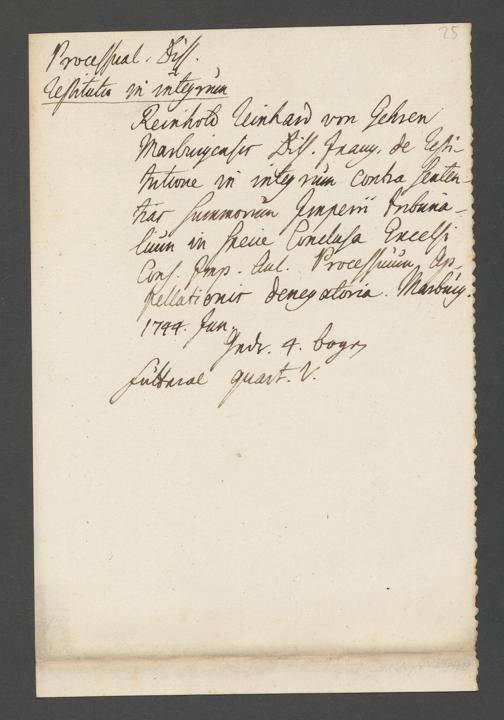 25
Processual. Diss.
Restitutio in integrum
Reinhold Reinhard von Gehren
Marburgensis Diss. inaug. de Resti
tutione in integrum contra senten-
tias summorum Imperii tribuna-
lium in specie Conclusa Excelsi
Cons. Imp. Aul. Processuum Ap
pellationis denegatoria. Marburg.
1744. Jun.
4. bogen
futteral quart. V.